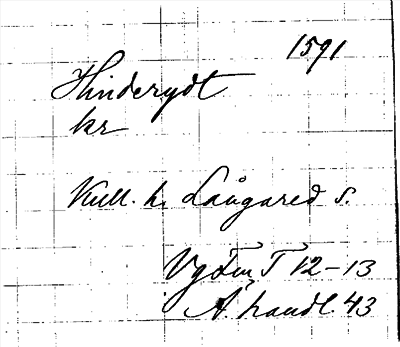 1591
Hinderydt
kr
Kull. h. Långared s.
Vg Fm T 12-13
Ä. handl. 43